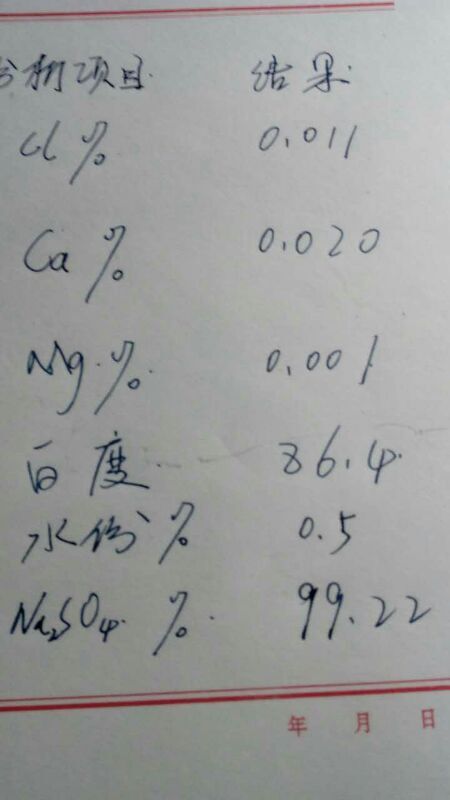 分析项目 结果
Cl% 0.011
Ca% 0.020
Mg.% 0.001
白度 86.4
水份% 0.5
Na₂SO₄.% 99.22
年 月 日